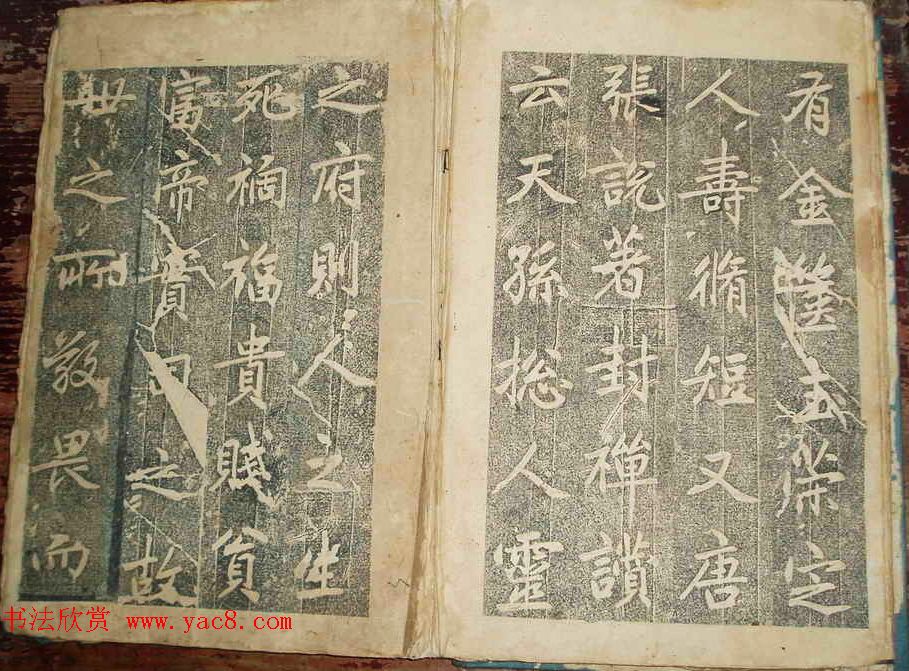 有金篋玉策定
人壽脩短又唐
張説著封禪讃
云天孫揔人靈
之府則人之生
死禍福貴賤貧
富帝實司之故
世之所敬畏而
书法欣赏 www.yac8.com